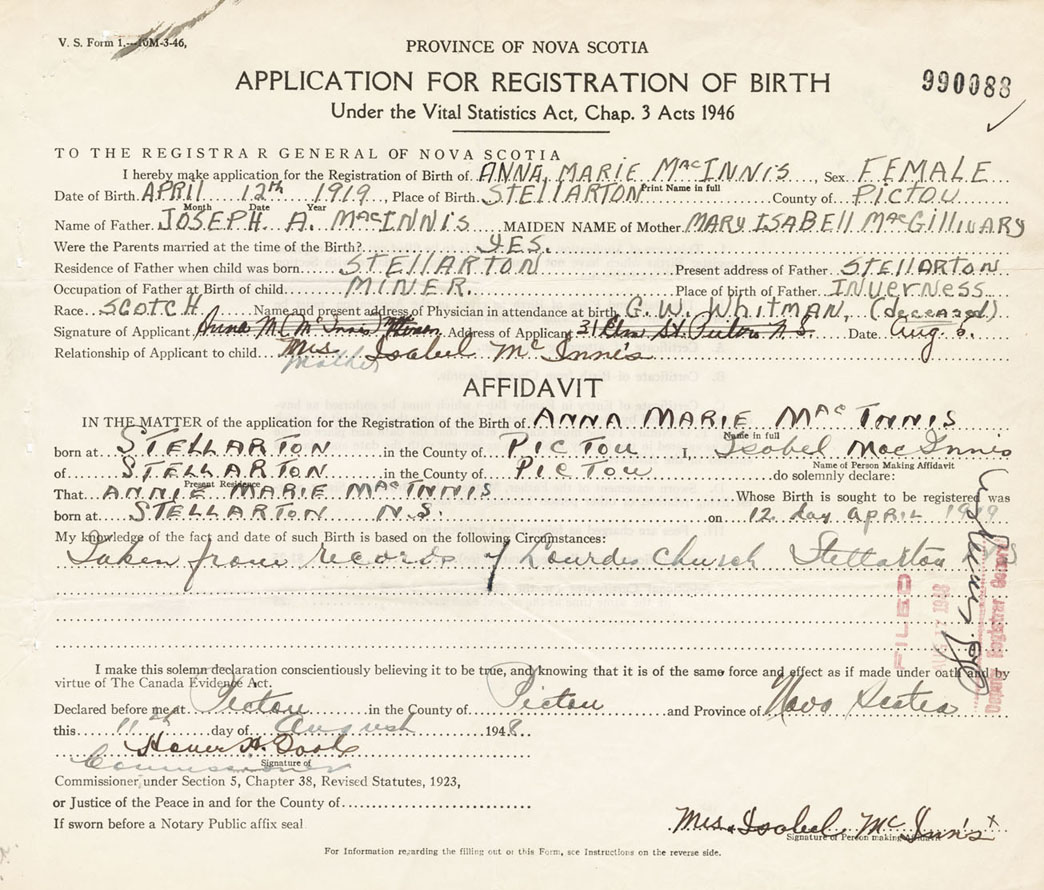 V. S. Form 1.—10M-3-46,
PROVINCE OF NOVA SCOTIA
APPLICATION FOR REGISTRATION OF BIRTH
990088
Under the Vital Statistics Act, Chap. 3 Acts 1946
TO THE REGISTRAR GENERAL OF NOVA SCOTIA
I hereby make application for the Registration of Birth of ANNA MARIE MacINNIS, Sex FEMALE
Print Name in full
Date of Birth APRIL 12th 1919, Place of Birth STELLARTON County of PICTOU
Month Date Year
Name of Father JOSEPH A. MacINNIS MAIDEN NAME of Mother MARY ISABELL MacGILLIVARY
Were the Parents married at the time of the Birth? YES.
Residence of Father when child was born STELLARTON Present address of Father STELLARTON
Occupation of Father at Birth of child MINER. Place of birth of Father INVERNESS
Race SCOTCH Name and present address of Physician in attendance at birth G. W. Whitman, (deceased)
Signature of Applicant Anna M (McInnis) Address of Applicant 31 Elm St Pictou N.S. Date Aug 6.
Relationship of Applicant to child Mrs Isabel McInnis
Mother
AFFIDAVIT
IN THE MATTER of the application for the Registration of the Birth of ANNA MARIE MacINNIS
Name in full
born at STELLARTON in the County of PICTOU I, Isobel MacInnis
Name of Person Making Affidavit
of STELLARTON in the County of PICTOU do solemnly declare:
Present Residence
That ANNIE MARIE MacINNIS Whose Birth is sought to be registered was
born at STELLARTON N.S. on 12 day APRIL 1919
My knowledge of the fact and date of such Birth is based on the following Circumstances:
Taken from records of Lourdes Church Stellarton N.S
FILED
Deputy Registrar General
I make this solemn declaration conscientiously believing it to be true, and knowing that it is of the same force and effect as if made under oath and by
virtue of The Canada Evidence Act.
Declared before me at Pictou in the County of Pictou and Province of Nova Scotia
this 11th day of August 1948.
Signature of
Commissioner
Commissioner under Section 5, Chapter 38, Revised Statutes, 1923,
or Justice of the Peace in and for the County of
If sworn before a Notary Public affix seal
Mrs. Isobel McInnis x
Signature of Person making Affidavit
For Information regarding the filling out of this Form, see Instructions on the reverse side.